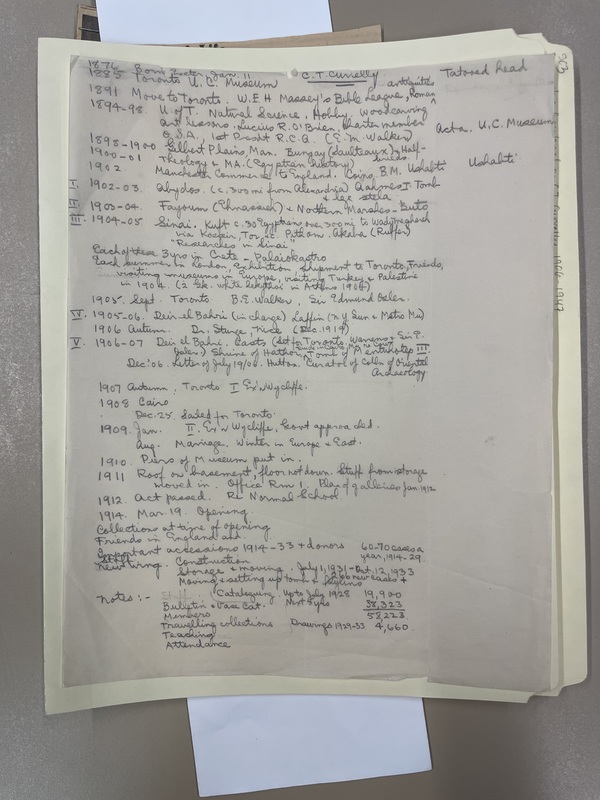 1876 Born Exeter Jan. 11 C.T. Currelly Tatooed head
1885 Toronto U.C. Museum antiquities
1891 Move to Toronto. W.E.H Massey's Bible League, Roman
1894-98. U of T. Natural Science, Hobby, Woodcarving
Art lessons, Lucius R. O'Brien, charter member Acta. U.C. Museum
O.S.A., 1st Presdt R.C.A. (E.M. Walker)
1898-1900 Gilbert Plains, Man. Bungay (Saulteaux) & Half-
1900-01 Theology & MA. (Egyptian history) breeds.
1902. Manchester Commerce to England. Coins, B.M. Ushabti Ushabti
I. 1902-03. Abydos (c. 300 mi from Alexandria) Aahmes I Tomb
& lge stela
II. 1903-04. Fayoum (Ehnasieh) & Northern Marshes - Buto
III. 1904-05 Sinai. Kuft c. 30 Egyptians over 300 mi to Wady Maghareh
via Tor, etc. Pithom. Akaba (Ruffer)
"Researches in Sinai"
Each of these 3 yrs in Crete - Palaiokastro
Each summer in London, exhibition shipment to Toronto, Friends,
visiting museums in Europe, visiting Turkey & Palestine
in 1904. (2 bk. white lekythoi in Athens 1904)
1905. Sept. Toronto B.E. Walker, Sir Edmund Osler.
IV. 1905-06. Deir el Bahri (in charge) Laffin (N Y Sun & Metro Mu)
1906 Autumn. Dr. Sturge, Nice (Dec. 1914)
V. 1906-07 Deir el Bahri. Casts (set for Toronto, Warren & Sir E.
Osler.) Shrine of Hathor, Tomb of Mentuhotep III.
Dec '06. Letter of July 19/06. Hutton. Curator of Colln of Oriental
Archaeology
1907 Autumn, Toronto I Ex'n Wycliffe.
1908 Cairo
Dec. 25 Sailed for Toronto.
1909. Jan. II. Ex'n Wycliffe, Govnt approached.
Aug. Marriage. Winter in Europe & East.
1910. Piers of Museum put in.
1911 Roof on basement, floor not down. Stuff from storage
moved in. Office Rm 1. Plan of galleries Jan. 1912
1912. Act passed. Re Normal School
1914. Mar. 19. Opening.
Collections at time of opening
Friends in England and
Important accessions 1914-33 & donors 60-70 cases a
year, 1914-29.
New wing. Construction
Storage & moving, July 1, 1931 - Oct. 12, 1933
Moving & setting up tomb & new cases &
Notes :- Staff. (Cataloguing. Up to July 1928 19,900
Bulletin & Vase Cat. Next 5 yrs 38,323
Members 58,223
Travelling collections Drawings 1929-33 4,660
Teaching
Attendance